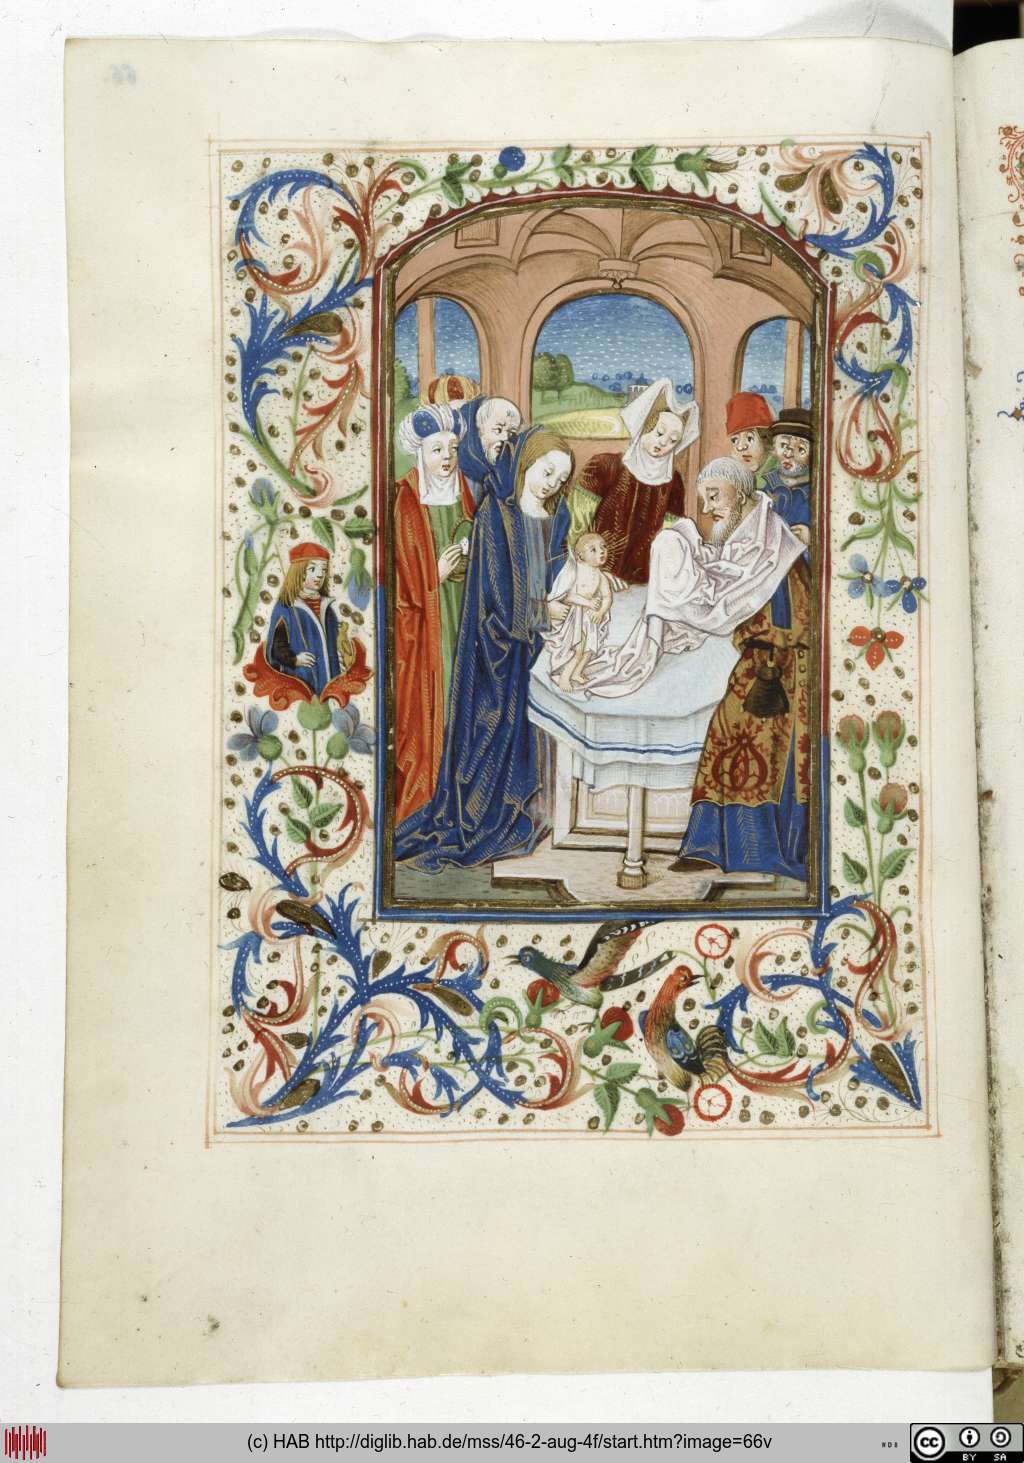 66
(c) HAB http://diglib.hab.de/mss/46-2-aug-4f/start.htm?image=66v
WDB
cc
BY SA